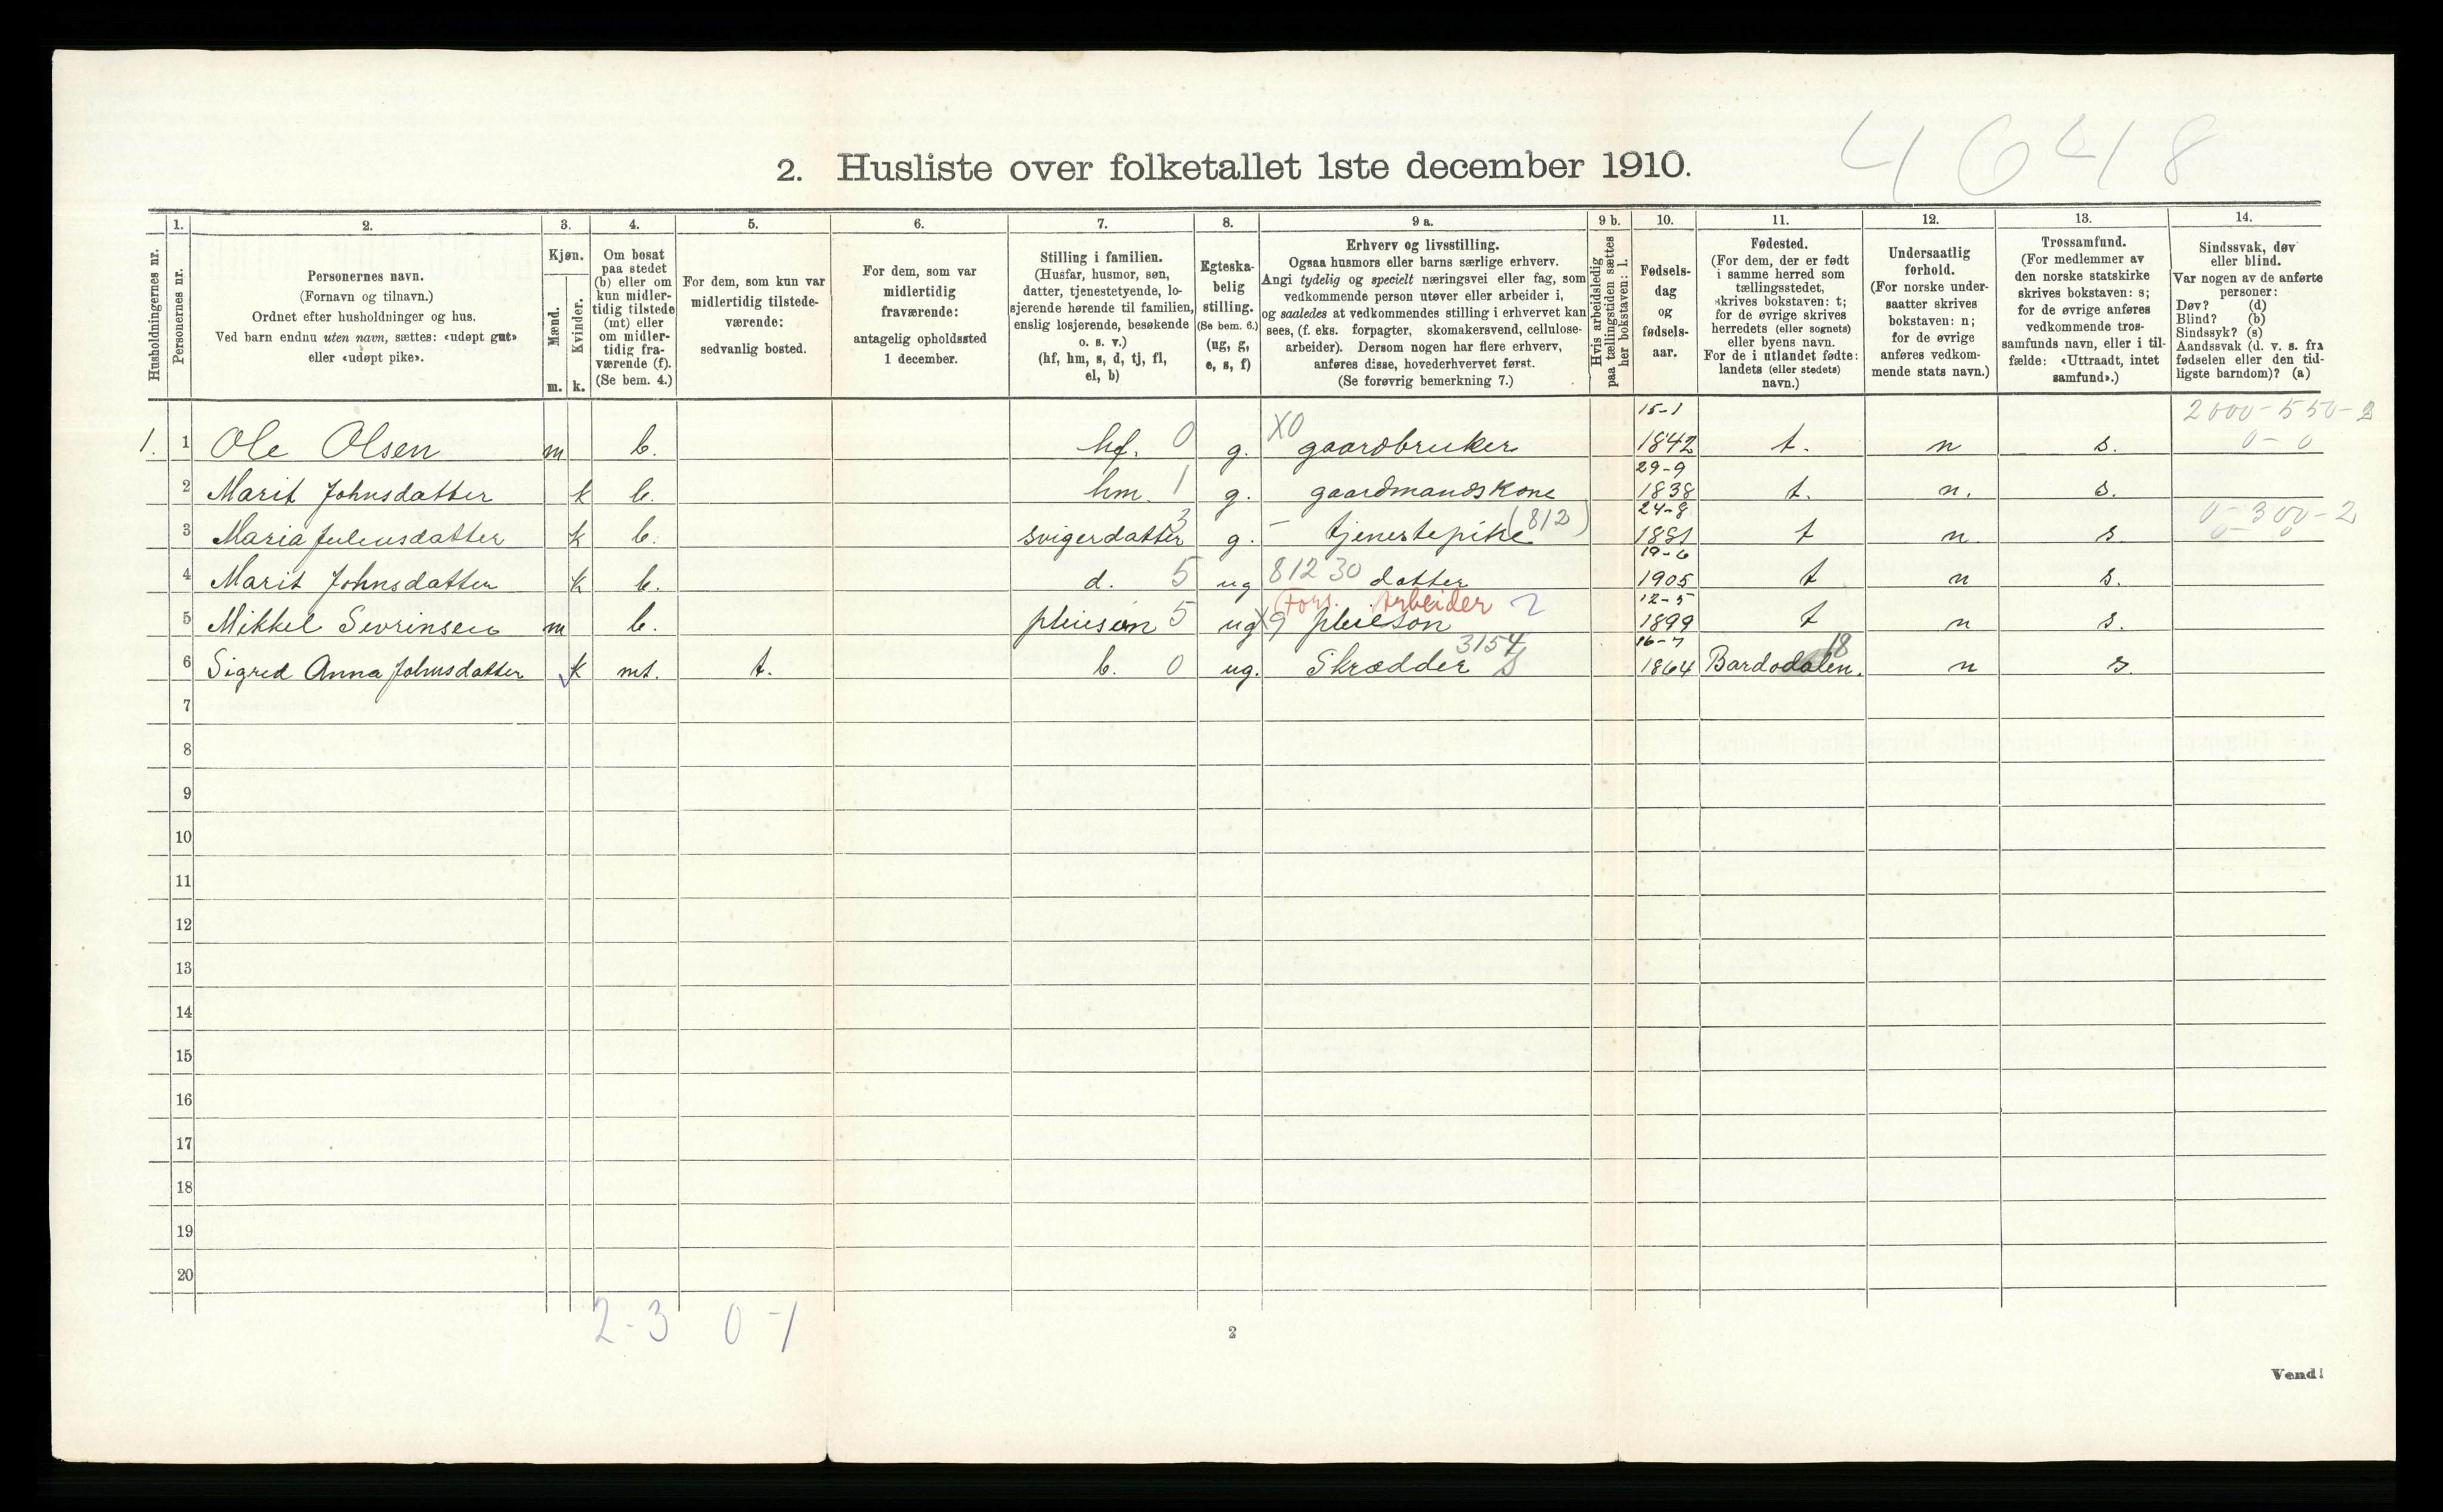 4648
2. Husliste over folketallet 1ste december 1910.
Husholdningernes nr.
1.
Personernes nr.
2.
Personernes navn.
(Fornavn og tilnavn.)
Ordnet efter husholdninger og hus.
Ved barn endnu uten navn, sættes: «udøpt gut»
eller «udøpt pike».
3.
Kjøn.
Mænd.
Kvinder.
m. k.
4.
Om bosat
paa stedet
(b) eller om
kun midler-
tidig tilstede
(mt) eller
om midler-
tidig fra-
værende (f).
(Se bem. 4.)
5.
For dem, som kun var
midlertidig tilstede-
værende:
sedvanlig bosted.
6.
For dem, som var
midlertidig
fraværende:
antagelig opholdssted
1 december.
7.
Stilling i familien.
(Husfar, husmor, søn,
datter, tjenestetyende, lo-
sjerende hørende til familien,
enslig losjerende, besøkende
o. s. v.)
(hf, hm, s, d, tj, fl,
el, b)
8.
Egteska-
belig
stilling.
(Se bem. 6.)
(ug, g,
e, s, f)
9 a.
Erhverv og livsstilling.
Ogsaa husmors eller barns særlige erhverv.
Angi tydelig og specielt næringsvei eller fag, som
vedkommende person utøver eller arbeider i,
og saaledes at vedkommendes stilling i erhvervet kan
sees, (f. eks. forpagter, skomakersvend, cellulose-
arbeider). Dersom nogen har flere erhverv,
anføres disse, hovederhvervet først.
(Se forøvrig bemerkning 7.)
9 b.
Hvis arbeidsledig
paa tællingstiden sættes
her bokstaven: l.
10.
Fødsels-
dag
og
fødsels-
aar.
11.
Fødested.
(For dem, der er født
i samme herred som
tællingsstedet,
skrives bokstaven: t;
for de øvrige skrives
herredets (eller sognets)
eller byens navn.
For de i utlandet fødte:
landets (eller stedets)
navn.)
12.
Undersaatlig
forhold.
(For norske under-
saatter skrives
bokstaven: n;
for de øvrige
anføres vedkom-
mende stats navn.)
13.
Trossamfund.
(For medlemmer av
den norske statskirke
skrives bokstaven: s;
for de øvrige anføres
vedkommende tros-
samfunds navn, eller i til-
fælde: «Uttraadt, intet
samfund».)
14.
Sindssvak, døv
eller blind.
Var nogen av de anførte
personer:
Døv? (d)
Blind? (b)
Sindssyk? (s)
Aandssvak (d. v. s. fra
fødselen eller den tid-
ligste barndom)? (a)
15-1 2000-550-2
1. 1 Ole Olsen m b. hf. 0 g. X0 gaardbruker 1842 t. n s. 0-0
29-9
2 Marit Johnsdatter k b. hm. 1 g. gaardmandskone 1838 t. n. s.
24-8 0-300-2
3 Maria Juliusdatter k b. svigerdatter 3 g. - tjenestepike (812) 1881 t n. s. 0-0
19-6
4 Marit Johnsdatter k b. d. 5 ug 812 30 datter 1905 t n s.
Fors. Arbeider 2 12-5
5 Mikkel Sevrinsen m b. pleiesøn 5 ug X9 pleieson 1899 t n s.
3154 16-7 18
6 Sigred Anna Johnsdatter k mt. t. b. 0 ug. Skrædder S 1864 Bardodalen. n s.
7
8
9
10
11
12
13
14
15
16
17
18
19
20
2-3 0-1
2
Vend!